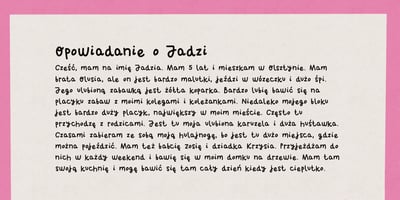 Opowiadanie o Jadzi
Cześć, mam na imię Jadzia. Mam 5 lat i mieszkam w Olsztynie. Mam
brata Olusia, ale on jest bardzo malutki, jeździ w wózeczku i dużo śpi.
Jego ulubioną zabawką jest żółta koparka. Bardzo lubię bawić się na
placyku zabaw z moimi kolegami i koleżankami. Niedaleko mojego bloku
jest bardzo duży placyk, największy w moim mieście. Często tu
przychodzę z rodzicami. Jest tu moja ulubiona karuzela i duża huśtawka.
Czasami zabieram ze sobą moją hulajnogę, bo jest tu dużo miejsca, gdzie
można pojeździć. Mam też babcię Zosię i dziadka Krzysia. Przyjeżdżam do
nich w każdy weekend i bawię się w moim domku na drzewie. Mam tam
swoją kuchnię i mogę bawić się tam cały dzień kiedy jest cieplutko.